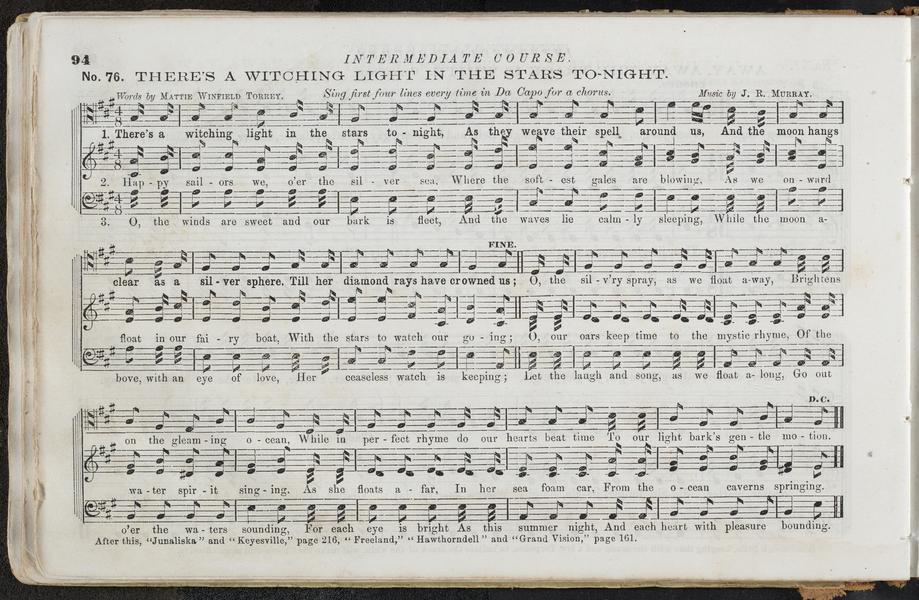 94
INTERMEDIATE COURSE.
No. 76. THERE'S A WITCHING LIGHT IN THE STARS TO-NIGHT.
Words by MATTIE WINFIELD TORREY. Sing first four lines every time in Da Capo for a chorus. Music by J. R. MURRAY.
1. There's a witching light in the stars to - night, As they weave their spell around us, And the moon hangs
2. Hap - py sail - ors we, o'er the sil - ver sea, Where the soft - est gales are blowing, As we on - ward
3. O, the winds are sweet and our bark is fleet, And the waves lie calm - ly sleeping, While the moon a-
FINE.
clear as a sil - ver sphere. Till her diamond rays have crowned us; O, the sil - v'ry spray, as we float a-way, Brightens
float in our fai - ry boat, With the stars to watch our go - ing; O, our oars keep time to the mystic rhyme, Of the
bove, with an eye of love, Her ceaseless watch is keeping; Let the laugh and song, as we float a - long, Go out
D.C.
on the gleam - ing o - cean, While in per - fect rhyme do our hearts beat time To our light bark's gen - tle mo - tion.
wa - ter spir - it sing - ing. As she floats a - far, In her sea foam car, From the o - cean caverns springing.
o'er the wa - ters sounding, For each eye is bright As this summer night, And each heart with pleasure bounding.
After this, "Junaliska" and "Keyesville," page 216, "Freeland," "Hawthorndell" and "Grand Vision," page 161.